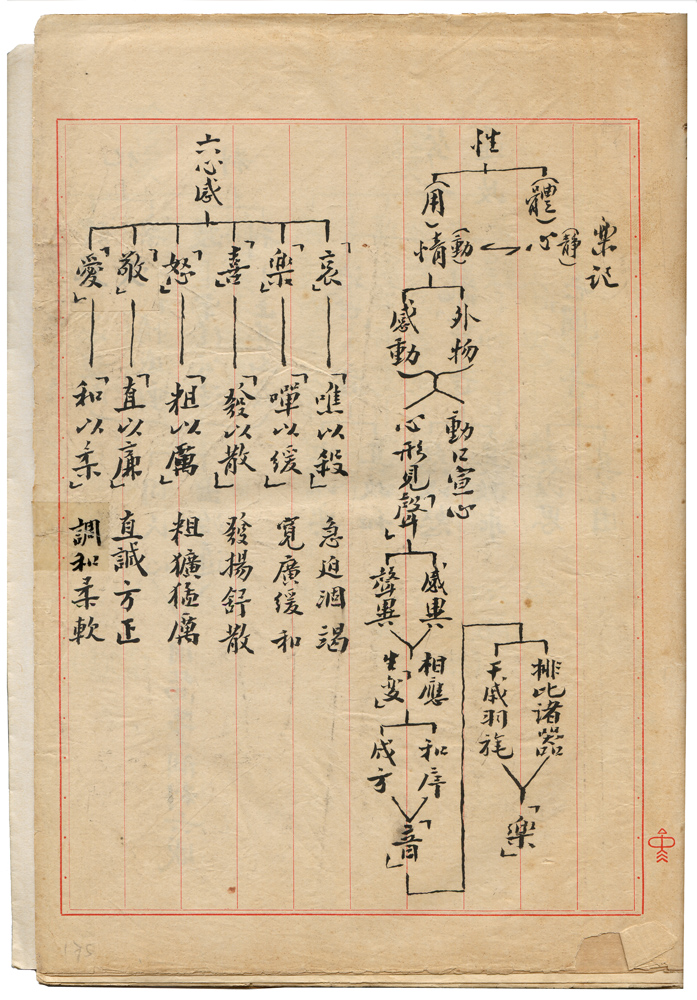 樂記
性
（體）心（靜）
（用）情（動）
外物
感動
動口宣心
心形見「聲」
感異
聲異
相應
生「変」
和序
成方
「音」
排比諸器
干戚羽旄
「樂」
六心感
「哀」「噍以殺」急迫涸竭
「樂」「嘽以緩」寬廣緩和
「喜」「發以散」發揚舒散
「怒」「粗以厲」粗獷猛厲
「敬」「直以廉」直誠方正
「愛」「和以柔」調和柔軟